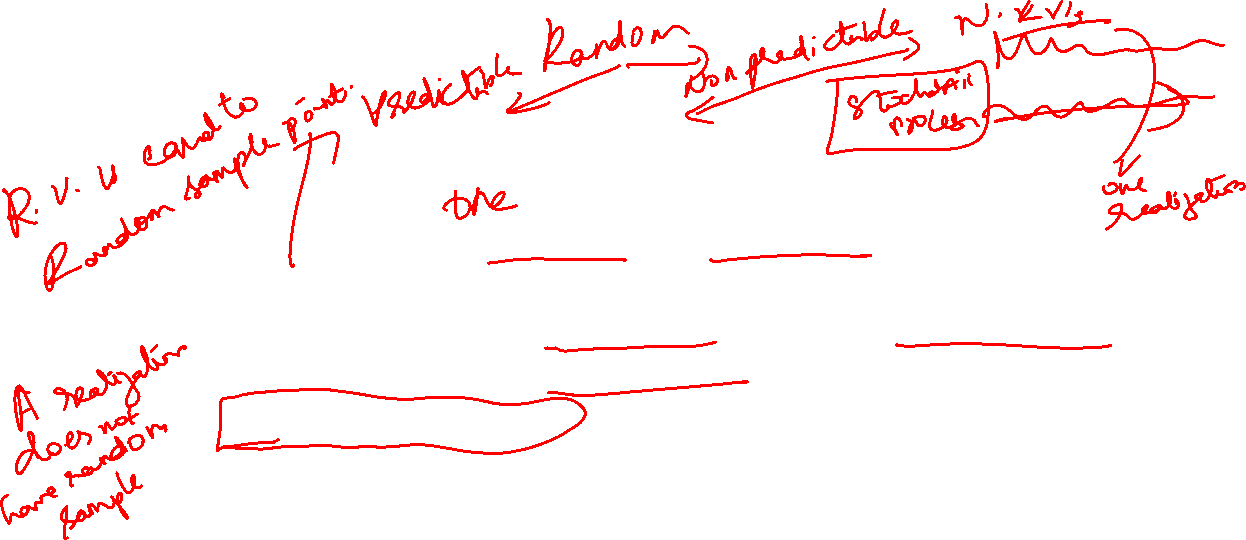 R.V. is cand to
Random sample point.
Predictable
Random
Non predictable
N. R.V's
Stochastic
process
one
realization
one
A realization
does not
have random
sample